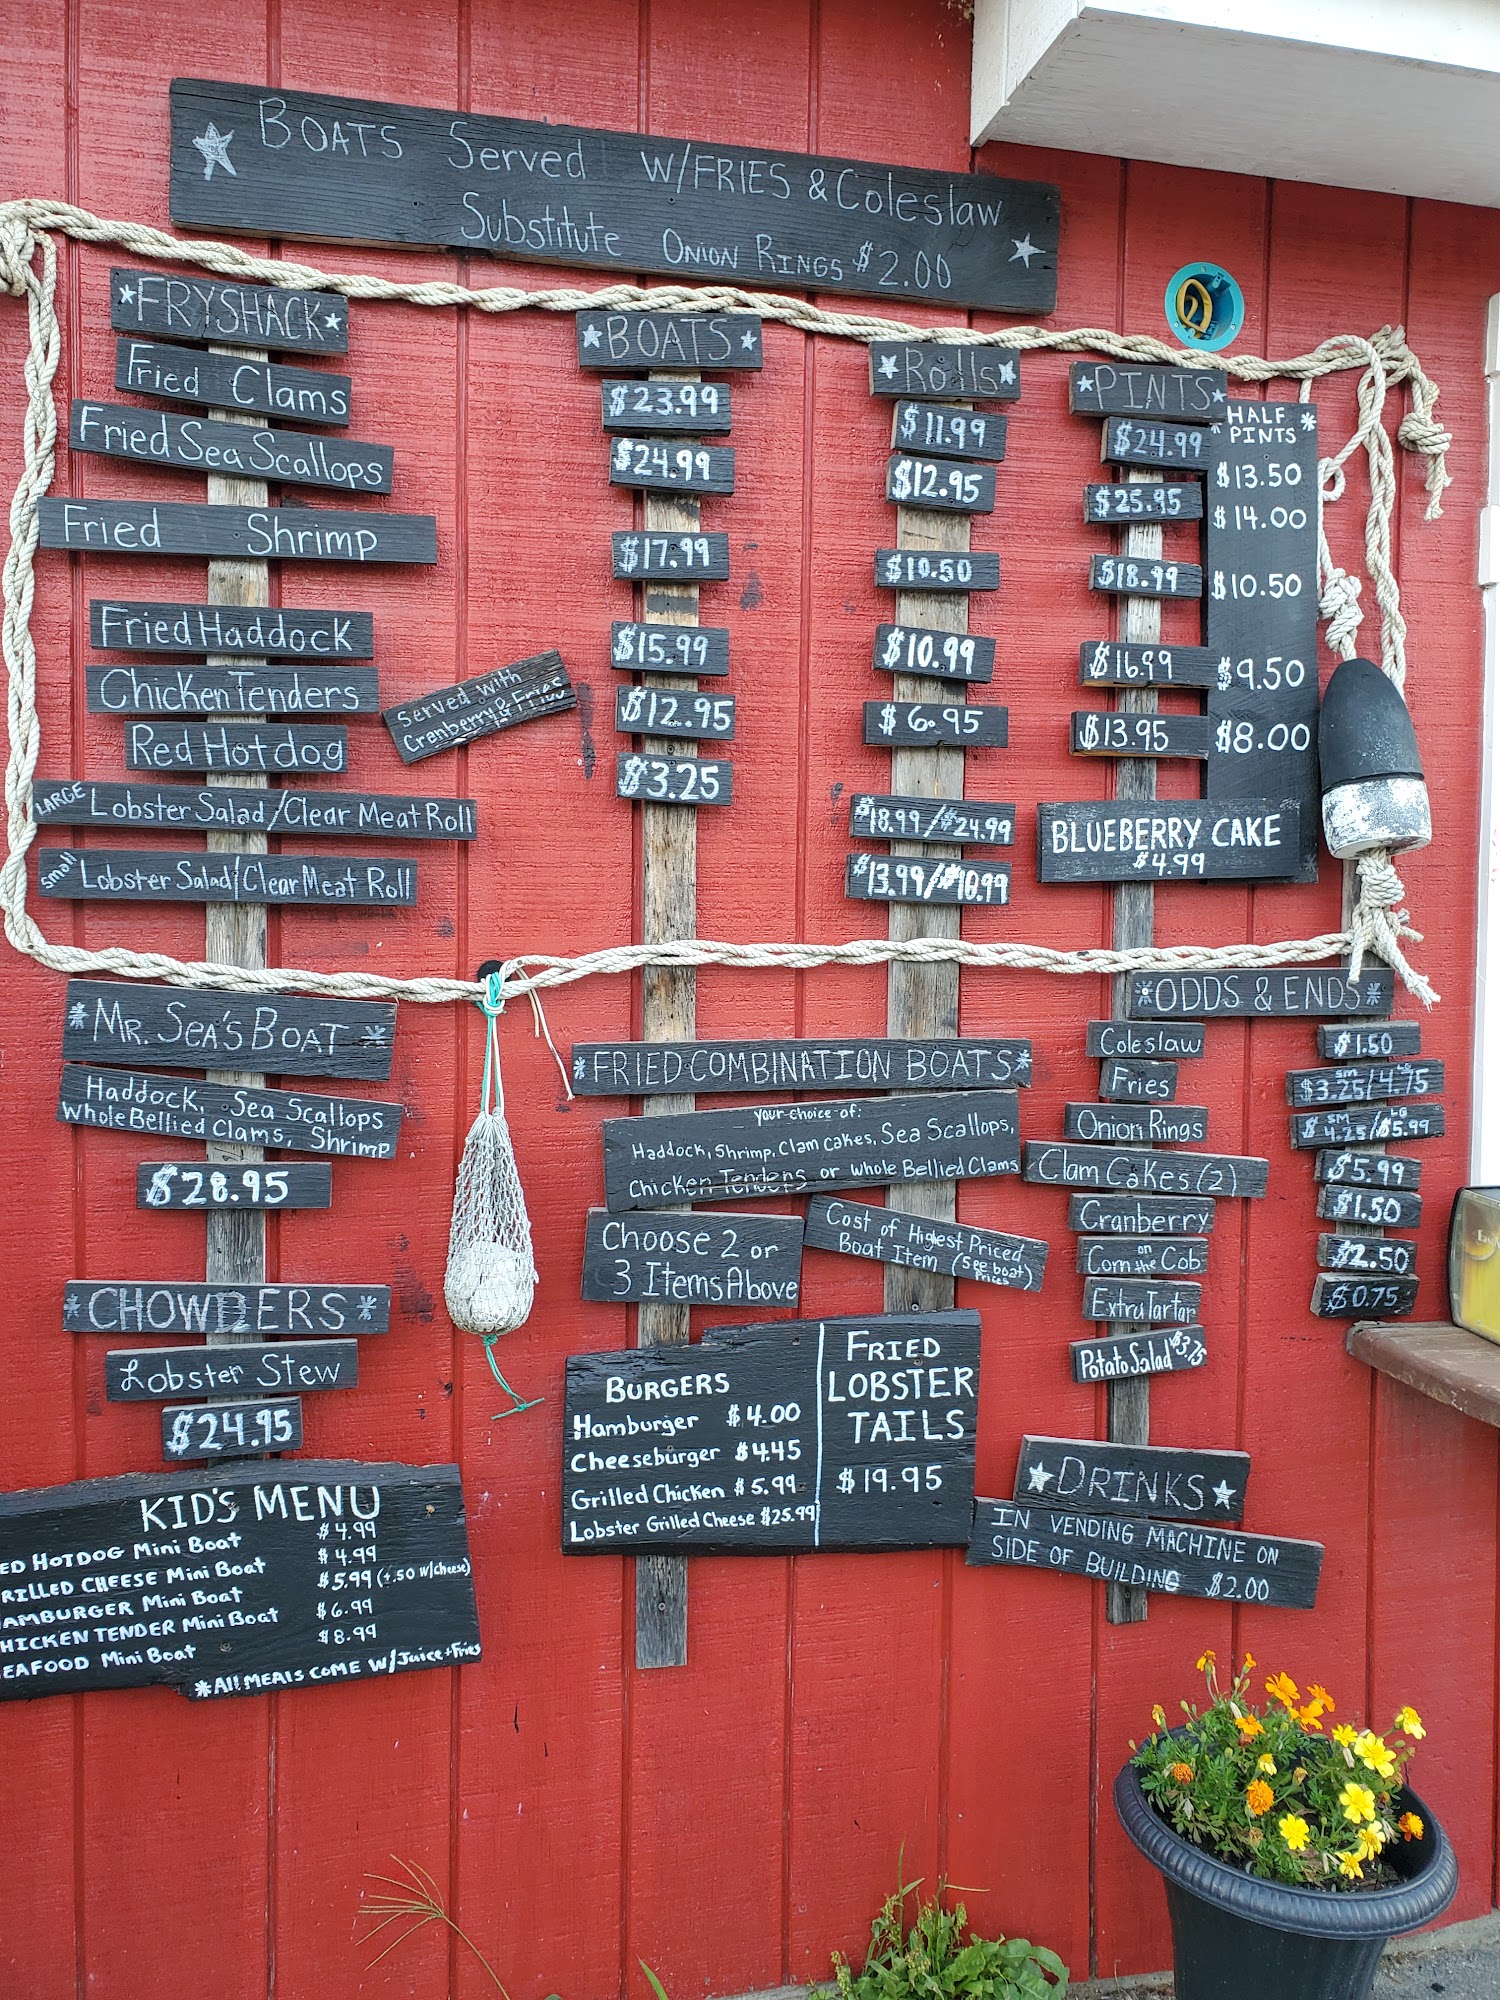 BOATS Served W/FRIES & Coleslaw
Substitute ONION RINGS $2.00
FRYSHACK
Fried Clams
Fried Sea Scallops
Fried Shrimp
Fried Haddock
Chicken Tenders
Served with
Cranberry & Fries
Red Hotdog
LARGE Lobster Salad/Clear Meat Roll
small Lobster Salad/Clear Meat Roll
BOATS
$23.99
$24.99
$17.99
$15.99
$12.95
$3.25
Rolls
$11.99
$12.95
$10.50
$10.99
$6.95
$18.99/$24.99
$13.99/$18.99
PINTS
$24.99
$25.95
$18.99
$16.99
$13.95
HALF
PINTS
$13.50
$14.00
$10.50
$9.50
$8.00
BLUEBERRY CAKE
$4.99
MR. SEA'S BOAT
Haddock, Sea Scallops
Whole Bellied Clams, Shrimp
$28.95
CHOWDERS
Lobster Stew
$24.95
KID'S MENU
ED HOTDOG Mini Boat $4.99
RILLED CHEESE Mini Boat $4.99
AMBURGER Mini Boat $5.99 (+.50 w/cheese)
HICKEN TENDER Mini Boat $6.99
EAFOOD Mini Boat $8.99
*All MEALS COME W/Juice+Fries
FRIED COMBINATION BOATS
your choice of:
Haddock, Shrimp, Clam cakes, Sea Scallops,
Chicken Tenders or whole Bellied Clams
Choose 2 or
3 Items Above
Cost of Highest Priced
Boat Item (See boat)
Prices
BURGERS
Hamburger $4.00
Cheeseburger $4.45
Grilled Chicken $5.99
Lobster Grilled Cheese $25.99
FRIED
LOBSTER
TAILS
$19.95
ODDS & ENDS
Coleslaw $1.50
Fries SM $3.25/LG 4.75
Onion Rings SM $4.25/LG $5.99
Clam Cakes (2) $5.99
Cranberry $1.50
Corn on the Cob $2.50
Extra Tartar $0.75
Potato Salad $3.75
DRINKS
IN VENDING MACHINE ON
SIDE OF BUILDING $2.00